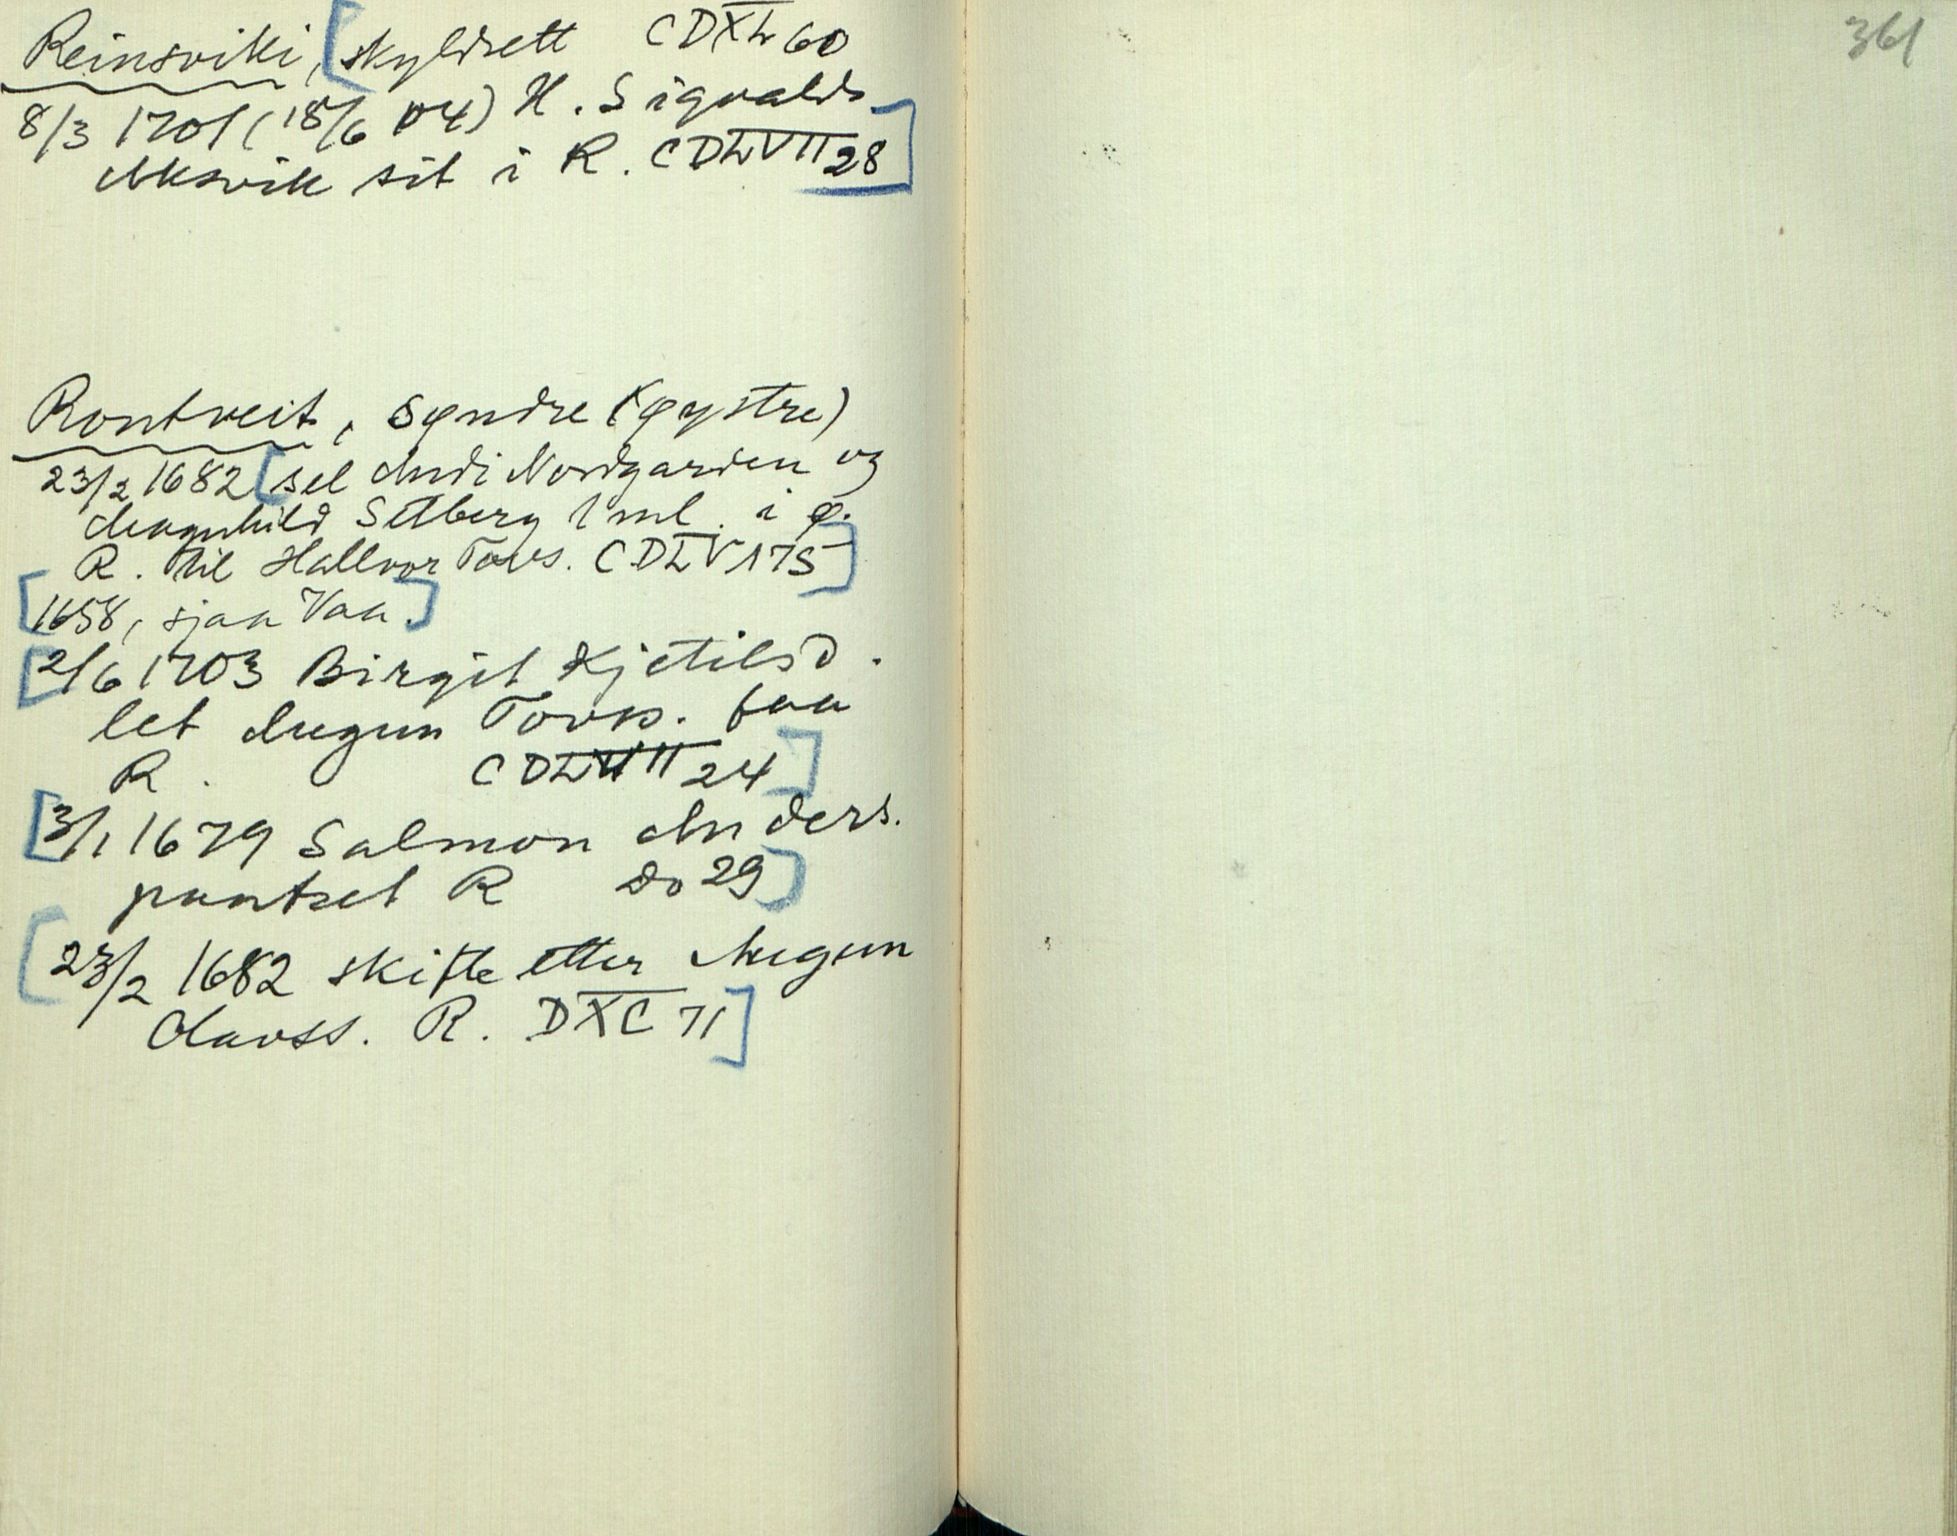 361
Reinsviki, [skyldsett CDXL 60
8/3 1701 (18/6 04) H. Sigvalds
Aksvik sit i R. CDLVII 28]
Rontveit, syndre (øystre)
23/2 1682 [sel Andi Nordgarden og
Aasgunhild Setberg 1 ml. i ø.
R. til Hallvor Tovs. CDLV 175]
[1658, sjaa Vaa.]
[2/6 1703 Birgit Kjetilsd.
let Augun Tovss. faa
R. CDLVII 24]
[3/1 1679 Salmon Anders.
pantset R Do 29]
[23/2 1682 skifte etter Augun
Olavss. R. DXC 71]